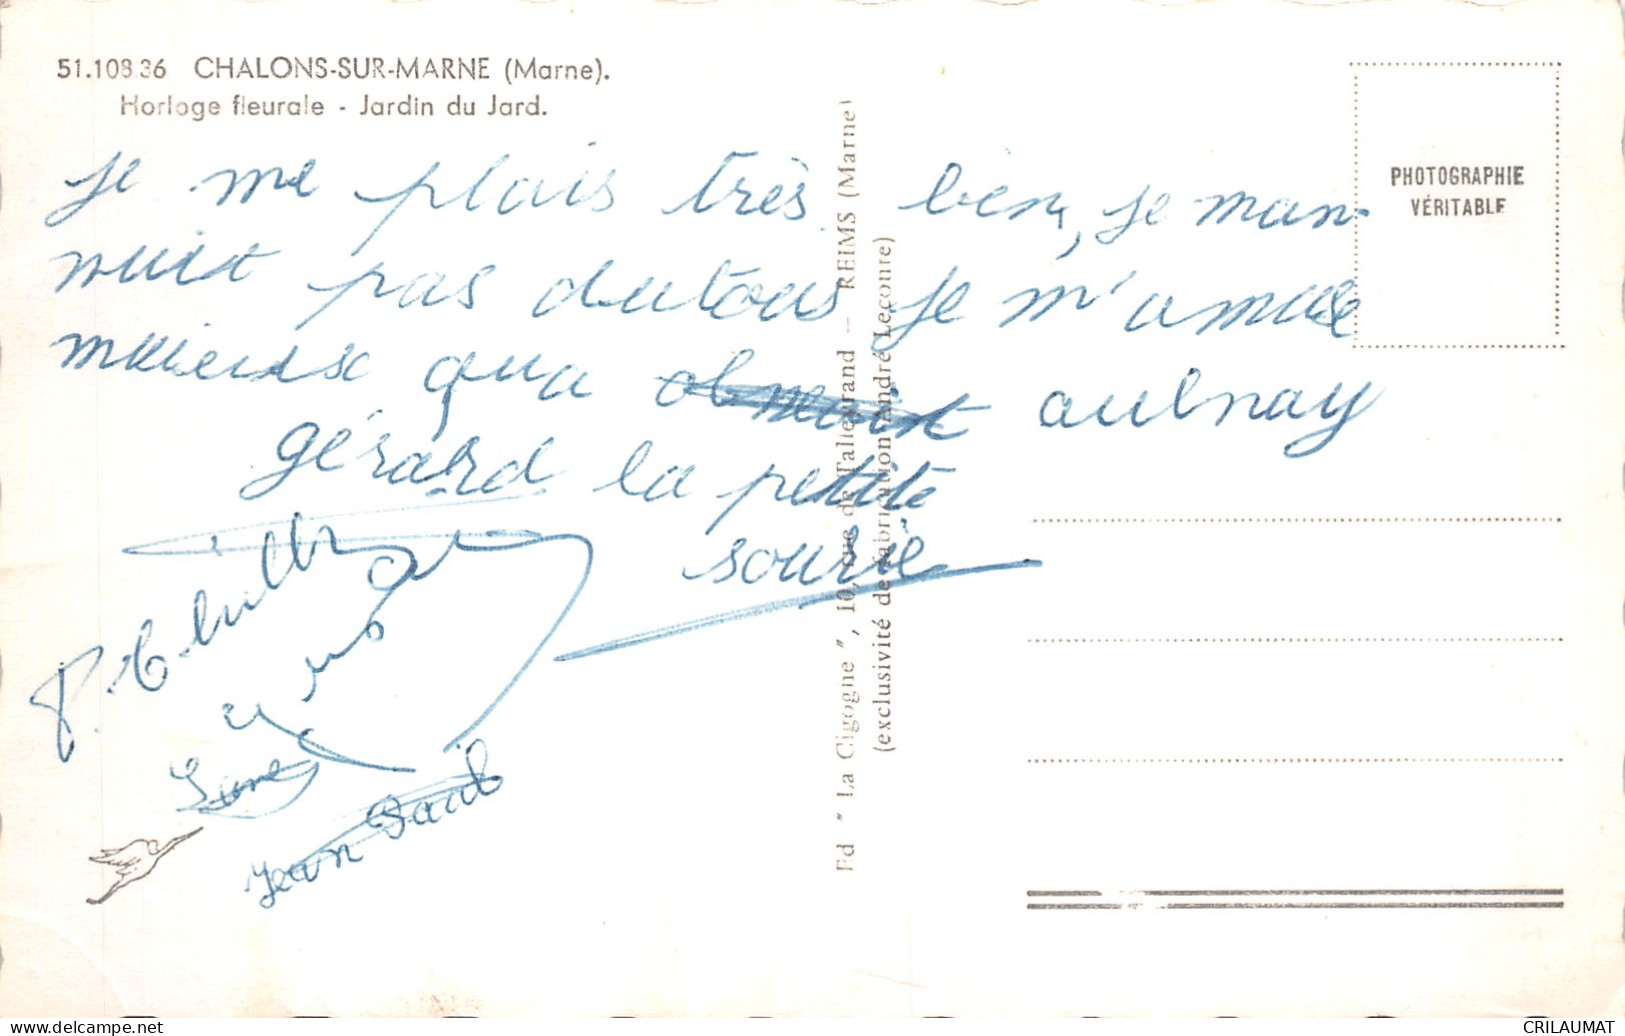 51.108.36 CHALONS-SUR-MARNE (Marne).
Horloge fleurale - Jardin du Jard.
PHOTOGRAPHIE
VÉRITABLE
je me plais très bien, je man
nuit pas dutous je m'amuse
muieuse qua aulnay
gérard la petite
sourie
Jean Paul
Ed "La Cigogne", 10, rue de Talleyrand - REIMS (Marne)
(exclusivité de fabrication André Leconte)
CRILAUMAT